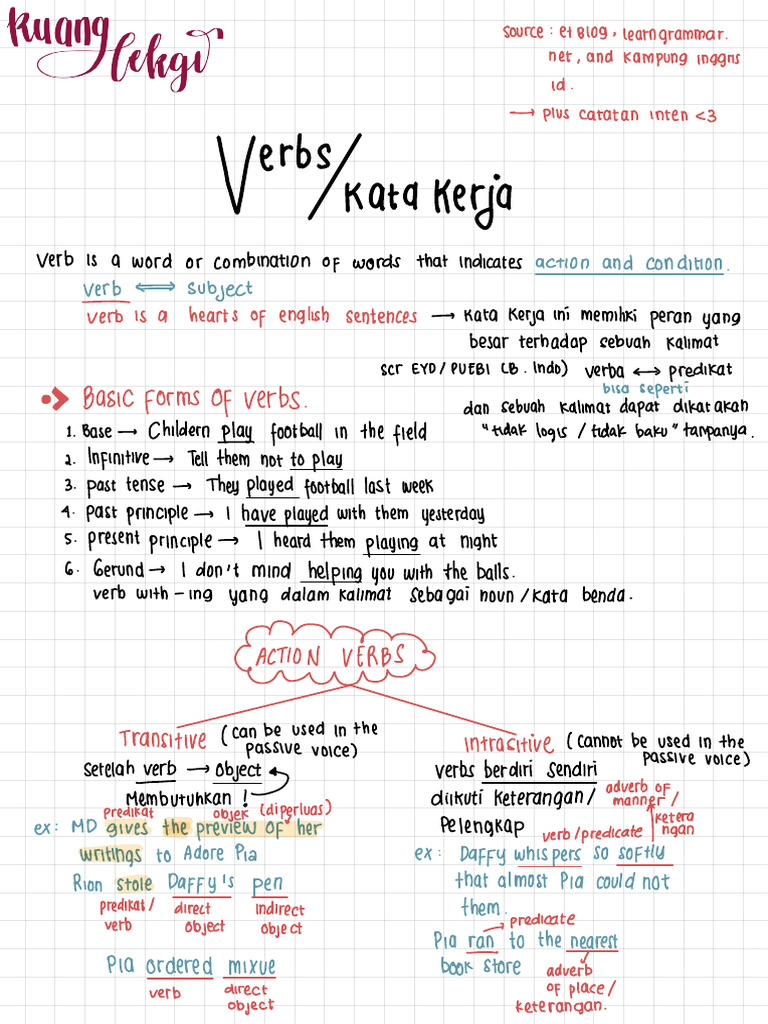 Ruang
Lekgi
Source : ef Blog, learngrammar.
net, and Kampung inggris
id.
→ plus catatan inten <3
Verbs/
Kata Kerja
Verb is a word or combination of words that indicates action and condition.
verb ⟺ subject
verb is a hearts of english sentences → Kata Kerja ini memiliki peran yang
besar terhadap sebuah kalimat
scr EYD/PUEBI (B. Indo) verba ↔ predikat
bisa seperti
dan sebuah kalimat dapat dikatakan
"tidak logis / tidak baku" tanpanya.
Basic forms of verbs.
1. Base → Childern play football in the field
2. Infinitive → Tell them not to play
3. past tense → They played football last week
4. past principle → I have played with them yesterday
5. present principle → I heard them playing at night
6. Gerund → I don't mind helping you with the balls.
verb with -ing yang dalam kalimat sebagai noun/kata benda.
ACTION VERBS
Transitive (can be used in the
passive voice)
Setelah verb → object
Membutuhkan!
predikat objek (diperluas)
ex: MD gives the preview of her
writings to Adore Pia
Rion stole Daffy's pen
predikat/ direct indirect
verb object object
Pia ordered mixue
verb direct
object
Intrasitive (cannot be used in the
passive voice)
verbs berdiri sendiri
diikuti keterangan/ adverb of
manner/
Pelengkap verb/predicate ketera
ngan
ex: Daffy whispers so softly
that almost Pia could not
them.
predicate
Pia ran to the nearest
book store adverb
of place/
keterangan.